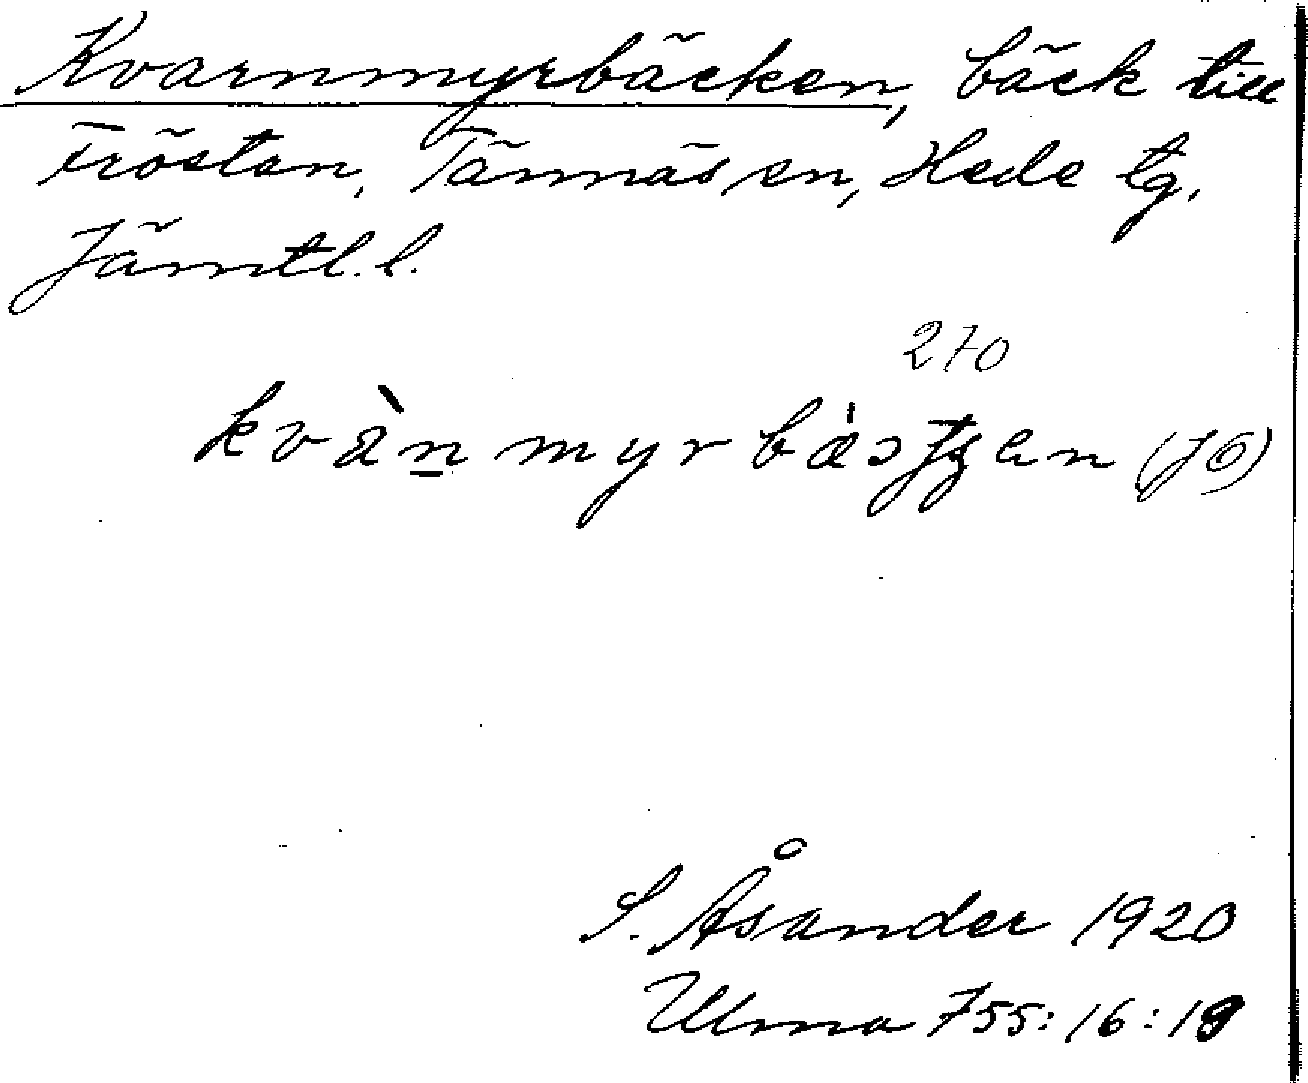 Kvarnmyrbäcken, bäck till
Tröstan, Tännäs sn, Hede tg.
Jämtl. l.
270
kvànmyrbäcƫƺen (JÖ)
S. Åsander 1920
Ulma 755:16:19